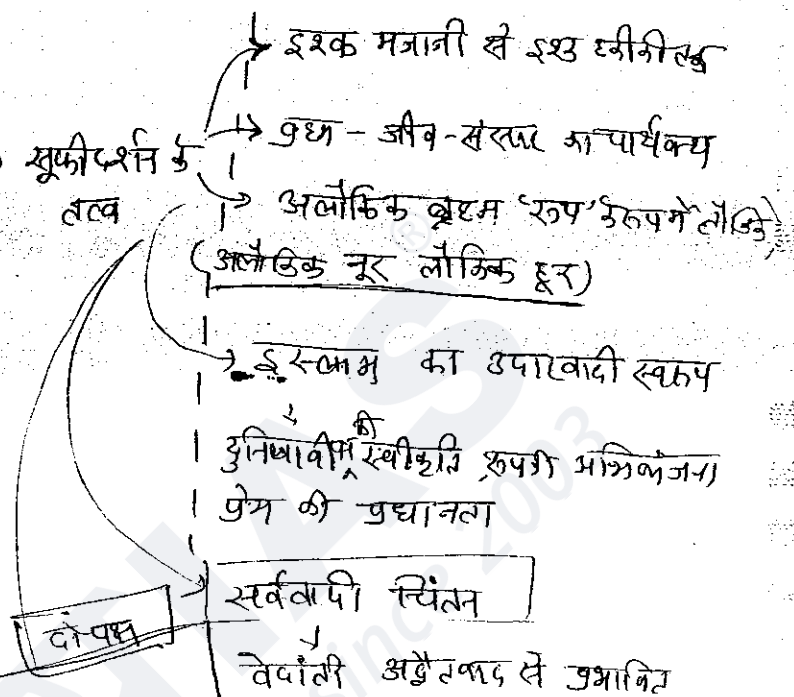 → इश्क मजाजी से इश्क हकीकी तक
→ ब्रह्म - जीव - संसार का पार्थक्य
सूफी दर्शन के
तत्व
→ अलौकिक ब्रह्म 'रूप' के रूप में लौकिक
(अलौकिक नूर लौकिक हूर)
→ इस्लाम का उदारवादी स्वरूप
दुनियावी की स्वीकृति, रूप की अभिव्यंजना
प्रेम की प्रधानता
सर्ववादी चिंतन
दो पक्ष
वेदांती अद्वैतवाद से प्रभावित
IAS
since 2003
®